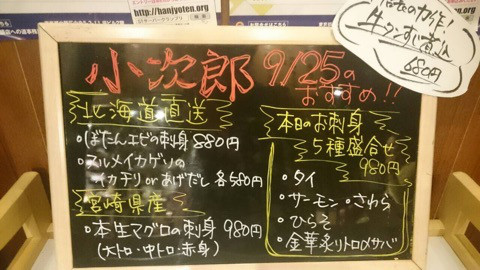 http://hanjyoten.org
hanjyoten.org
牛タンすじ煮込
680円
小次郎 9/25の
おすすめ!!
北海道直送
・ぼたんエビの刺身 880円
・スルメイカゲソの
イカチリorあげだし 各580円
宮崎県産
・本生マグロの刺身 980円
(大トロ・中トロ・赤身)
本日のお刺身
5種盛合せ
980円
・タイ
・サーモン・さわら
・ひらそ
・金華炙りトロ〆サバ